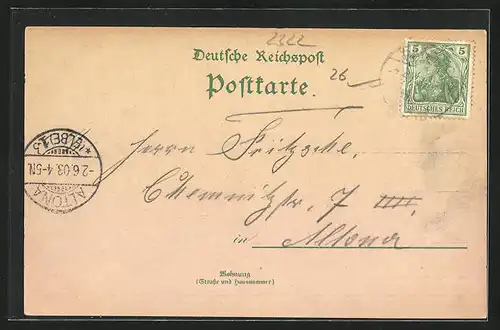 2322
Deutsche Reichspost
Postkarte.
26
5 5
DEUTSCHES REICH
*(ELBE)1.3
-2.6.03.4-5N.
ALTONA
Herrn Fritzsche,
Chemnitzstr. 7 IIII.
in Altona
Wohnung
(Straße und Hausnummer)